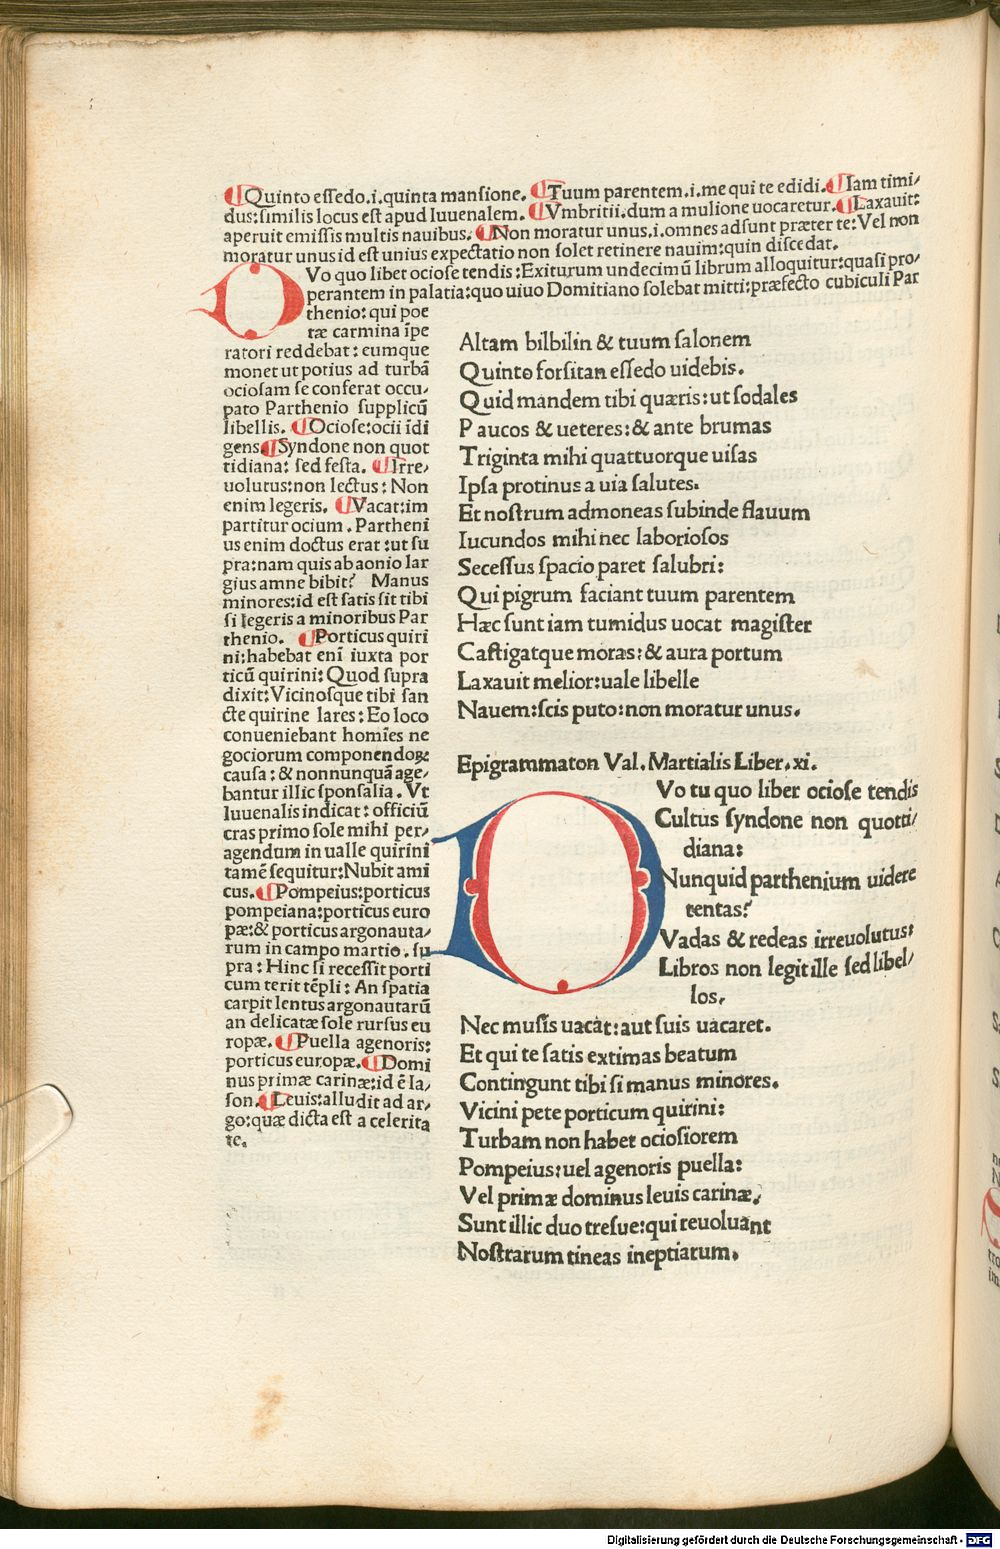 ¶Quinto eſſedo.i.quinta manſione. ¶Tuum parentem.i.me qui te edidi.¶Iam timi/
dus:ſimilis locus eſt apud Iuuenalem. ¶Vmbritii.dum a mulione uocaretur.¶Laxauit:
aperuit emiſſis multis nauibus. ¶Non moratur unus.i.omnes adſunt præter te:Vel non
moratur unus id eſt unius expectatio non ſolet retinere nauim:quin diſcedat.
QVo quo liber ocioſe tendis:Exiturum undecimū librum alloquitur:quaſi pro/
perantem in palatia:quo uiuo Domitiano ſolebat mitti:præfecto cubiculi Par
thenio: qui poe
tæ carmina īpe
ratori reddebat: eumque
monet ut potius ad turbā
ocioſam ſe conferat occu/
pato Parthenio ſupplicū
libellis. ¶Ocioſe:ocii īdi
gens¶Syndone non quot
tidiana: ſed feſta. ¶Irre/
uolutus:non lectus: Non
enim legeris. ¶Vacat:im
partitur ocium. Partheni
us enim doctus erat :ut ſu
pra:nam quis ab aonio lar
gius amne bibit? Manus
minores:id eſt ſatis ſit tibi
ſi legeris a minoribus Par
thenio. ¶Porticus quiri
ni:habebat enī iuxta por
ticū quirini: Quod ſupra
dixit:Vicinoſque tibi ſan
cte quirine lares: Eo loco
conueniebant homīes ne
gociorum componendoꝝ
cauſa: & nonnunquā age/
bantur illic ſponſalia. Vt
Iuuenalis indicat: officiū
cras primo ſole mihi per/
agendum in ualle quirini
tamē ſequitur:Nubit ami
cus.¶Pompeius:porticus
pompeiana:porticus euro
pæ:& porticus argonauta/
rum in campo martio. ſu
pra: Hinc ſi receſſit porti
cum terit tēpli: An ſpatia
carpit lentus argonautarū
an delicatæ ſole rurſus eu
ropæ. ¶Puella agenoris:
porticus europæ.¶Domi
nus primæ carinæ:id ē Ia/
ſon.¶Leuis:alludit ad ar/
go:quæ dicta eſt a celerita
te.
Altam bilbilin & tuum ſalonem
Quinto forſitan eſſedo uidebis.
Quid mandem tibi quæris:ut ſodales
Paucos & ueteres:& ante brumas
Triginta mihi quattuorque uiſas
Ipſa protinus a uia ſalutes.
Et noſtrum admoneas ſubinde flauum
Iucundos mihi nec laborioſos
Seceſſus ſpacio paret ſalubri:
Qui pigrum faciant tuum parentem
Hæc ſunt iam tumidus uocat magiſter
Caſtigatque moras:& aura portum
Laxauit melior:uale libelle
Nauem:ſcis puto:non moratur unus.
Epigrammaton Val. Martialis Liber.xi.
QVo tu quo liber ocioſe tendis
Cultus ſyndone non quotti/
diana:
Nunquid parthenium uidere
tentas?
Vadas & redeas irreuolutus:
Libros non legit ille ſed libel/
los.
Nec muſis uacat:aut ſuis uacaret.
Et qui te ſatis extimas beatum
Contingunt tibi ſi manus minores.
Vicini pete porticum quirini:
Turbam non habet ocioſiorem
Pompeius:uel agenoris puella:
Vel primæ dominus leuis carinæ.
Sunt illic duo treſue:qui reuoluant
Noſtrarum tineas ineptiarum.
Digitalisierung gefördert durch die Deutsche Forschungsgemeinschaft - DFG